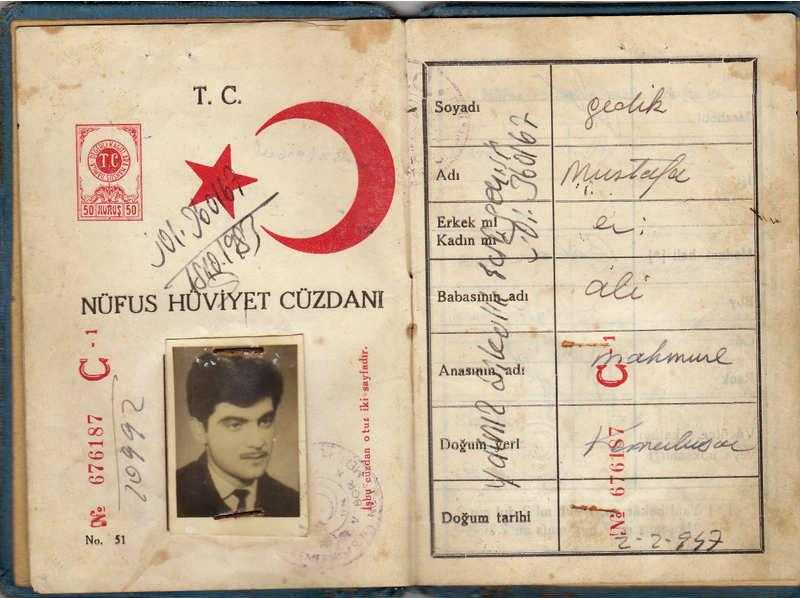 T. C.
T.C
50 KURUŞ 50
101. 360167
18.10.1983
NÜFUS HÜVİYET CÜZDANI
C-1
№ 676187
20992
İşbu cüzdan otuz iki sayfadır.
No. 51
Soyadı gedik
Adı Mustafa
Erkek mi
Kadın mı er:
Babasının adı ali
Anasının adı mahmure
Doğum yeri Kemerhisar
Doğum tarihi 2-2-947
C-1
№ 676187
101. 360167